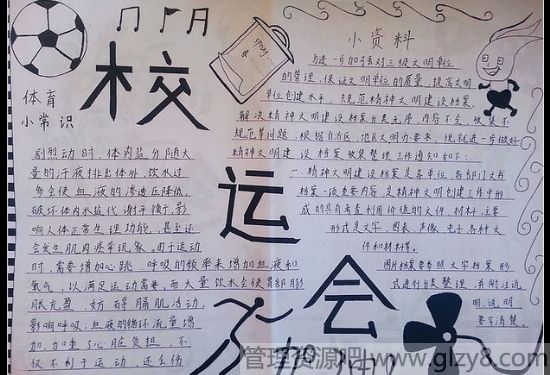 校
运
会
加
油
体育
小常识
剧烈运动时，体内盐分随大
量的汗液排出体外，饮水过
多会使血液的渗透压降低，
破坏体内水盐代谢平衡，影
响人体正常生理功能，甚至还
会发生肌肉痉挛现象。由于运动
时，需要增加心跳、呼吸的频率来增加血液和
氧气，以满足运动需要，而大量饮水会使胃部膨
胀充盈，妨碍膈肌活动，
影响呼吸；血液的循环流量增
加，加重了心脏负担，不
仅不利于运动，还会伤
小资料
为进一步加强对三级文明单位
的管理，保证文明单位的质量，提高文明
单位创建水平，规范精神文明建设档案，
解决精神文明建设档案分类无序、内容不全、收集不
规范等问题，根据自治区、地区文明办要求，现就进一步做好
精神文明建设档案收集整理工作通知如下：
一、精神文明建设档案是各单位、各部门文明
档案一项重要内容，是精神文明创建工作中形
成的具有查考利用价值的文件、材料，主要
形式是文字、图表、声像、电子各种文
件和材料等。
图片档案要参照文字档案形
式进行归类整理，并附说
明，说明
要写清楚。
管理资源吧 www.glzy8.com